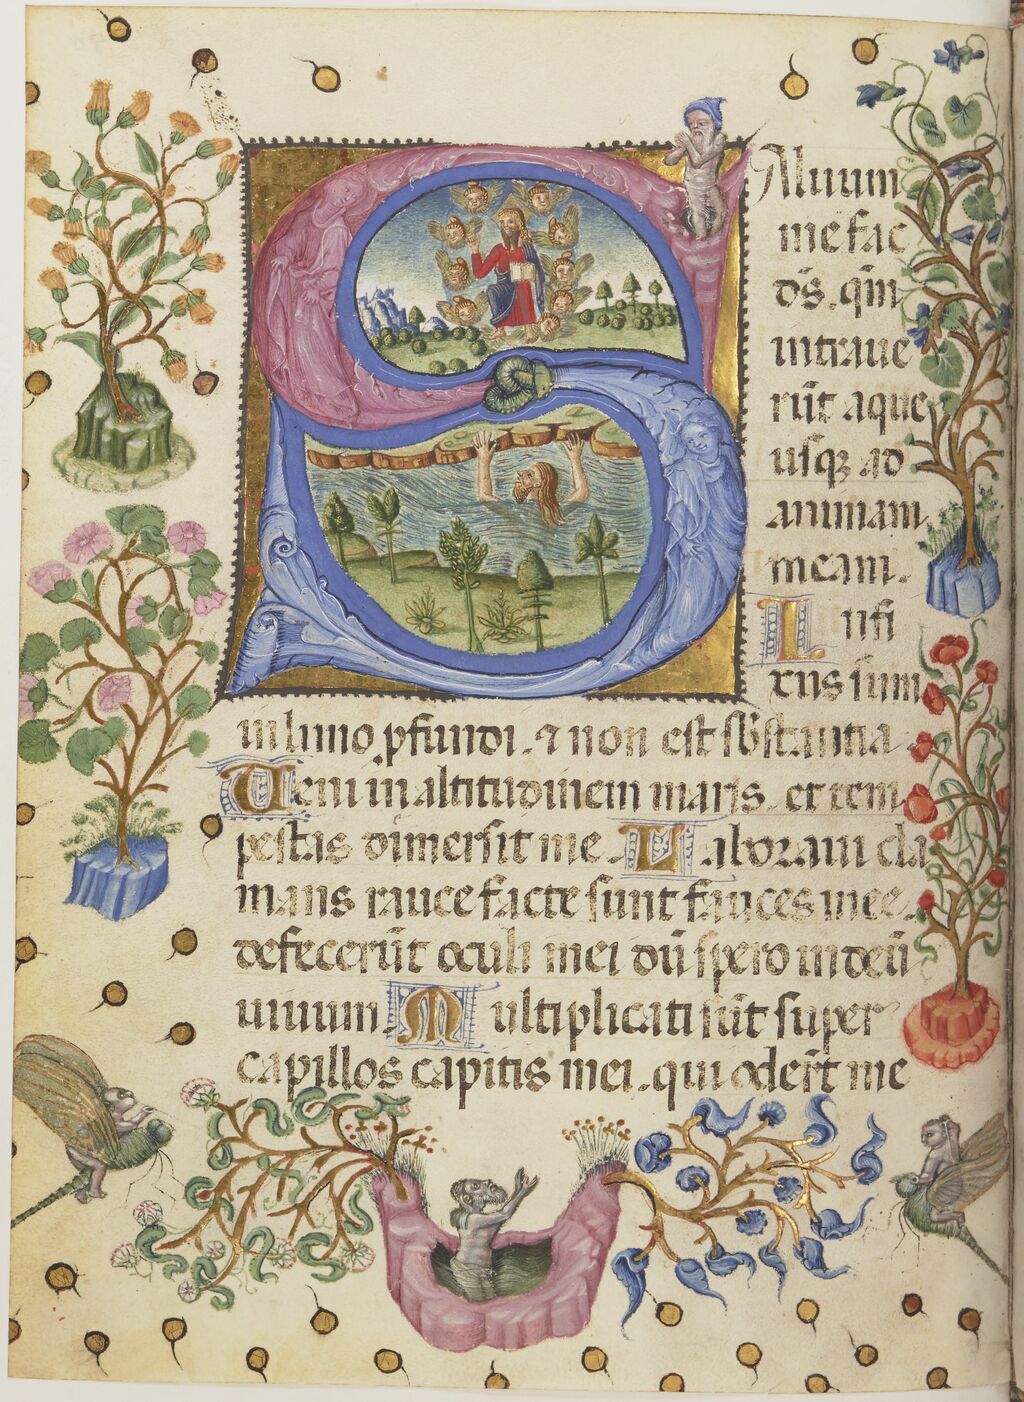 Aluum
me fac
ds. qm
intraue
rūt aque
usq; ad
animam
meam.
Infi
xus sum
in limo pfundi. ⁊ non est sbstantia
Veni in altitudinem maris. et tem
pestas dimersit me. Laboraui cla
mans rauce facte sunt fauces mee.
defecerūt oculi mei dū spero in deū
uiuum. Multiplicati sūt super
capillos capitis mei. qui oderūt me